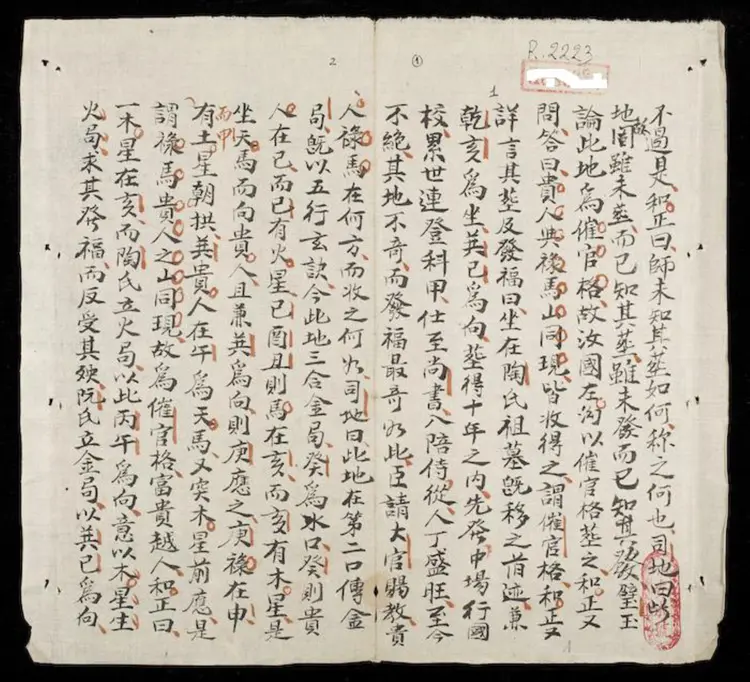 R.2223
1
①
2
不過是、和正曰、師未知其塟如何、称之何也、司地曰、此
地圖雖未塟、而已知其塟、雖未發而已知其發、璧玉
論此地為催官格、故汝國左以催官格塟之、和正又
問答曰、貴人與祿馬山同現、皆收得之、謂催官格、和正又
詳言其塟及發福曰、坐在陶氏祖墓既移之旧迹、兼
乾亥為坐、巽已為向、塟得十年之內、先發中場、行國
校、累世連登科甲、仕至尚書、入陪侍從、人丁盛旺、至今
不絕、其地不奇、而發福最奇如此、臣請大官賜教、貴
人祿馬在何方、而收之何如、司地曰、此地在第二口傳、金
局、既以五行玄訣、今此地三合金局、癸為水口、癸則貴
人在已、而已有火星、已酉丑則馬在亥、而亥有木星、是
坐天馬而向貴人、且兼巽為向、則庚應之、庚祿在申
丙甲
有土星朝拱、巽貴人在午、為天馬、又突木星前應、是
謂祿馬貴人之山同現、故為催官格、富貴越人、和正曰、
一木星在亥、而陶氏立火局、以此丙午為向、意以木星生
火局、求其發福、而反受其殃、阮氏立金局、以巽已為向、